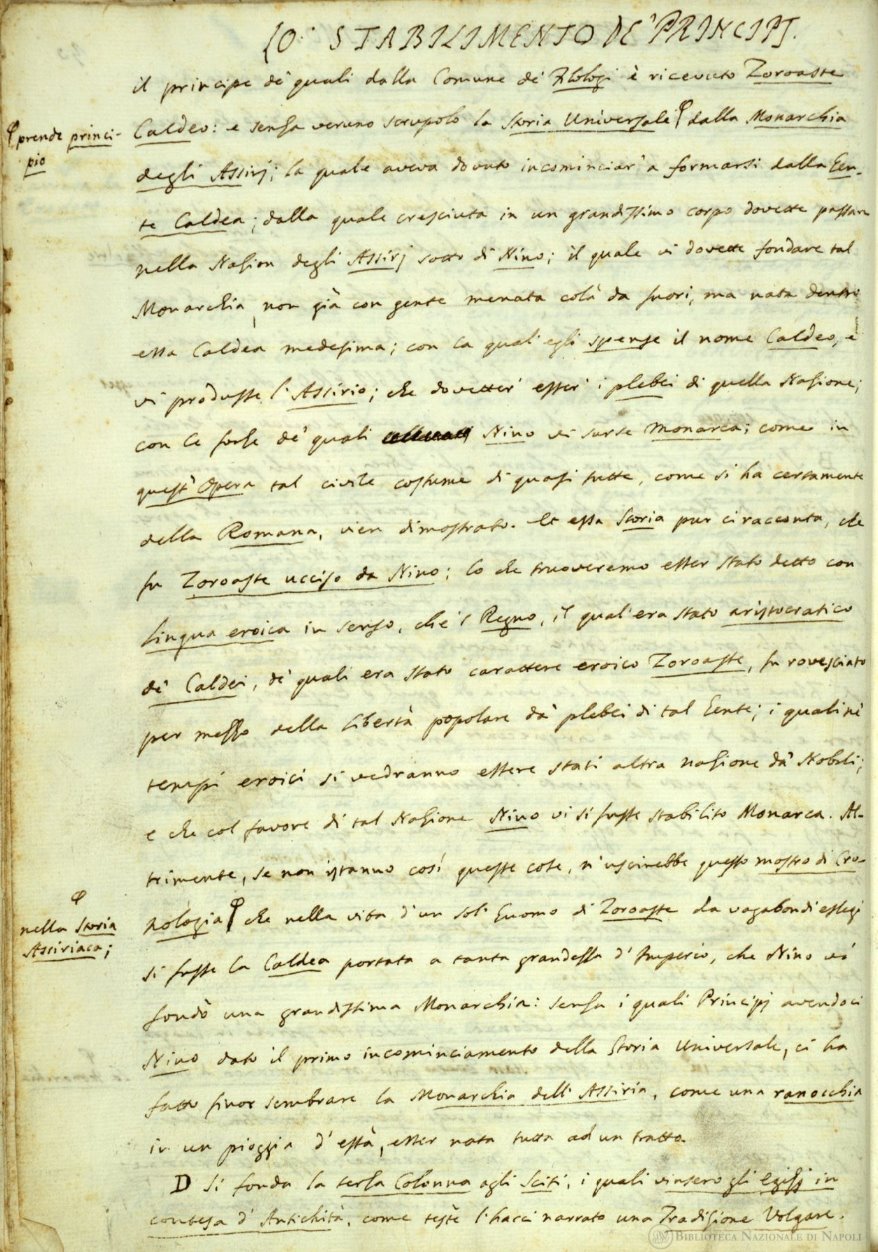 LO STABILIMENTO DE' PRINCIPJ.
il principe de' quali dalla Comune de' Filologi è ricevuto Zoroaste
Caldeo: e senza veruno scrupolo la Storia Universale dalla Monarchia
prende princi-
pio
degli Assirj; la quale aveva dovuto incominciar' a formarsi dalla Gen-
te Caldea; dalla quale cresciuta in un grandissimo corpo dovette passare
nella Nazion degli Assirj sotto di Nino; il quale vi dovette fondare tal
Monarchia, non già con gente menata colà da fuori, ma nata dentro
essa Caldea medesima; con la qual' egli spense il nome Caldeo, e
vi produsse l'Assirio; che dovetter' esser' i plebei di quella Nazione;
con le forze de' quali Nino vi surse Monarca; come in
quest' Opera tal civile costume di quasi tutte, come si ha certamente
della Romana, vien dimostrato. Et essa Storia pur ci racconta, che
fu Zoroaste ucciso da Nino; lo che truoveremo esser stato detto con
lingua eroica in senso, che'l Regno, il qual' era stato aristocratico
de' Caldei, de' quali era stato carattere eroico Zoroaste, fu rovesciato
per mezzo della libertà popolare da' plebei di tal Gente; i quali ne'
tempi eroici si vedranno essere stati altra nazione da' Nobili;
e che col favore di tal Nazione Nino vi si fusse stabilito Monarca. Al-
trimente, se non istanno così queste cose, n'uscirebbe questo mostro di Cro-
nologia che nella vita d'un sol' Huomo di Zoroaste da vagabondi eslegi
nella Storia
Assiriaca;
si fusse la Caldea portata a tanta grandezza d'Imperio, che Nino vi
fondò una grandissima Monarchia: senza i quali Principj avendoci
Nino dato il primo incominciamento della Storia Universale, ci ha
fatto finor sembrare la Monarchia dell' Assiria, come una ranocchia
in un pioggia d'està, esser nata tutta ad un tratto.
D Si fonda la terza Colonna agli Sciti, i quali vinsero gli Egizj in
contesa d'Antichità, come testè l'hacci narrato una Tradizione Volgare.
BIBLIOTECA NAZIONALE DI NAPOLI